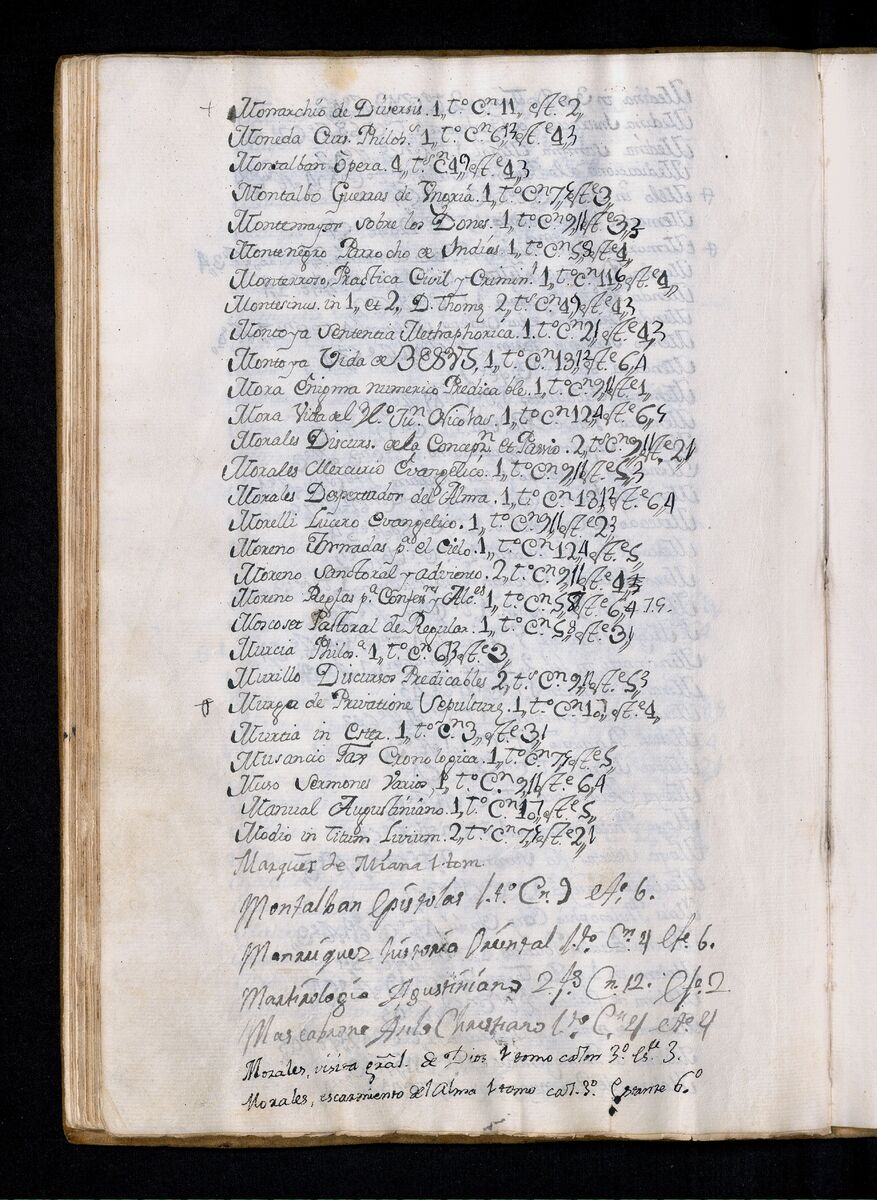 + Monarchio de Diversis. 1,, t.º C.n 11,, est.e 2,,
Moneda Curs. Philos.º 1,, t.º C.n est.e 4,,3
Montalban Opera. 4,, t.s est.e 4,,3
Montalbo Guerras de Vngria. 1,, t.º C.n 7, est.e 3,,
Montemayor, sobre los Dones. 1,, t.º C.n 9,, est.e 3,,
Montenegro Parrocho de Indias. 1,, t.º C.n est.e 4,,
Monterroso, Practica Civil y Crimin.l 1,, t.º C.n est.e 4,,
Montesinus. in 1,, et 2,, D. Thomę 2,, t.s C.n est.e 4,,3
Montoya Sententia Methaphorica. 1,, t.º C.n est.e 4,,3
Montoya Vida de 1,, t.º C.n est.e 6,,4
Mora Enigma numerico Predicable. 1,, t.º C.n est.e 1,,
Mora Vida del Nicolas. 1,, t.º C.n 12,,4 est.e 6,,5
Morales Discurs. de la Concep.n et Passio. 2,, t.s C.n est.e 2,,1
Morales Mercurio Evangelico. 1,, t.º C.n est.e 5,,3
Morales Despertador del Alma. 1,, t.º C.n est.e 6,,4
Morelli Lucero Evangelico. 1,, t.º C.n est.e 2,,3
Moreno Jornadas p.ª el Cielo. 1,, t.º C.n 12,,4 est.e 5,,
Moreno Sanctoral y adviento. 2,, t.s C.n est.e
Moreno Reglas p.ª Confes.res y Alc.es 1,, t.º C.n est.e 6,,4
Moscoset Pastoral de Regular. 1,, t.º C.n est.e 3,,1
Murcia Philos.ª 1,, t.º C.n est.e 3,,
Murillo Discursos Predicables 2,, t.s C.n est.e 5,,3
Murga de Privatione Sepulturę. 1,, t.º C.n est.e 4,,
Murcia in Ester. 1,, t.º C.n 3,, est.e 3,,1
Musancio Fax Cronologica. 1,, t.º C.n est.e 5,,
Muso Sermones Varios, 1,, t.º C.n est.e 6,,4
Manual Augustiniano. 1,, t.º C.n est.e 5,,
Modio in Titum Livium. 2,, t.s C.n est.e 2,,1
Marques de Miana 1 tom.
Montalban Epistolas 1. t.º C.n 9 est.e 6.
Manrriquez historia Oriental 1. t.º C.n 4 Est.e 6.
Martirologio Agustiniano 2 C.n 12. Est.e 2
Mascabrone Aulo Christiano 1. t.º C.n 4 est.e 4
Morales, visita grãl. de Dios 1 tomo cajon 3.º Est.te 3.
Morales, escarmiento del Alma 1 tomo caj. 3.º Estante 6.º